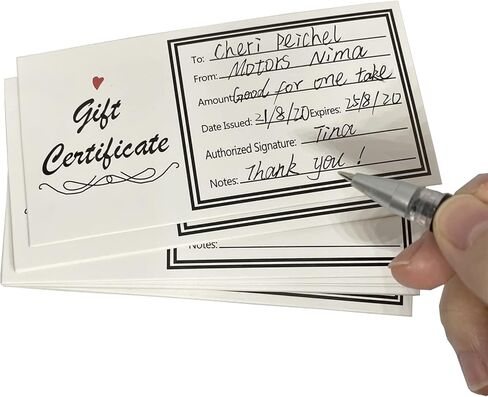 Gift
Certificate
To: Cheri Peichel
From: Motors Nima
Amount: Good for one take
Date Issued: 21/8/20 Expires: 25/8/20
Authorized Signature: Tina
Notes: Thank you!
Notes: